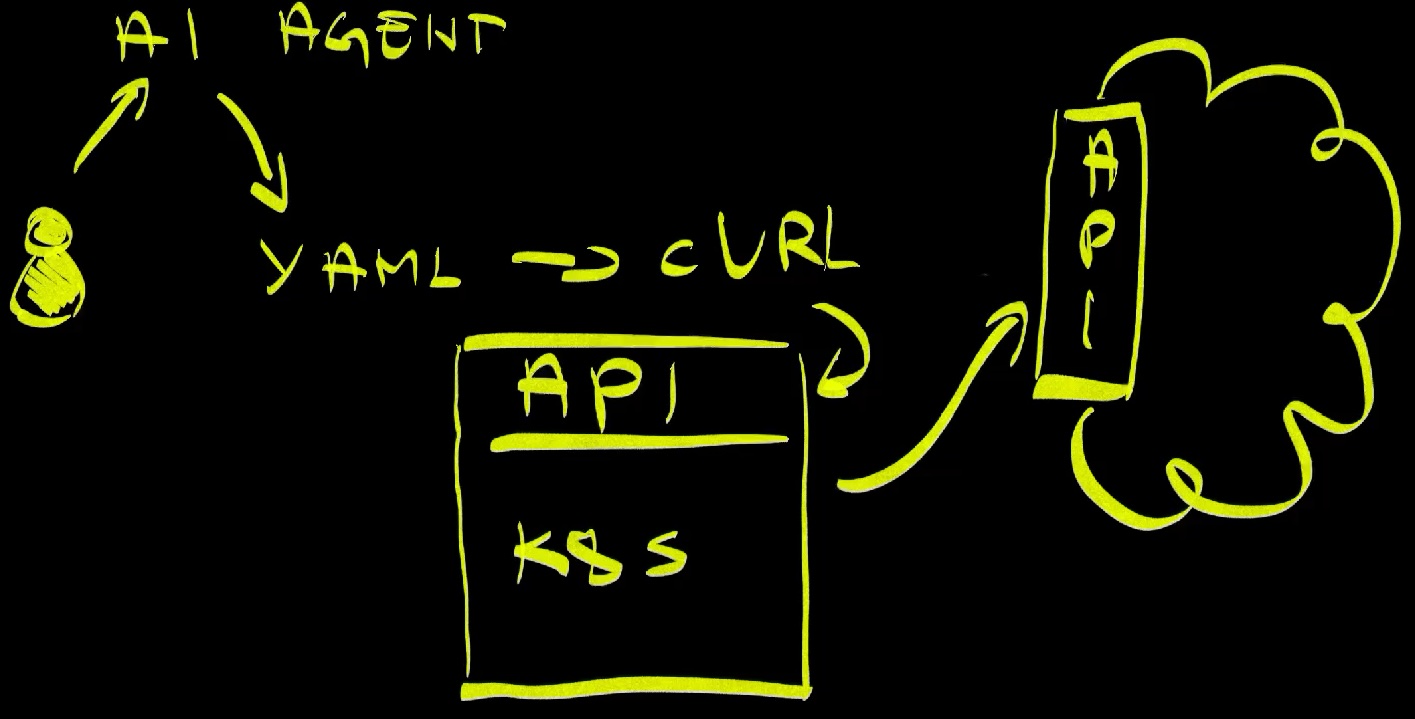 AI AGENT
YAML → cURL
API
K8S
API